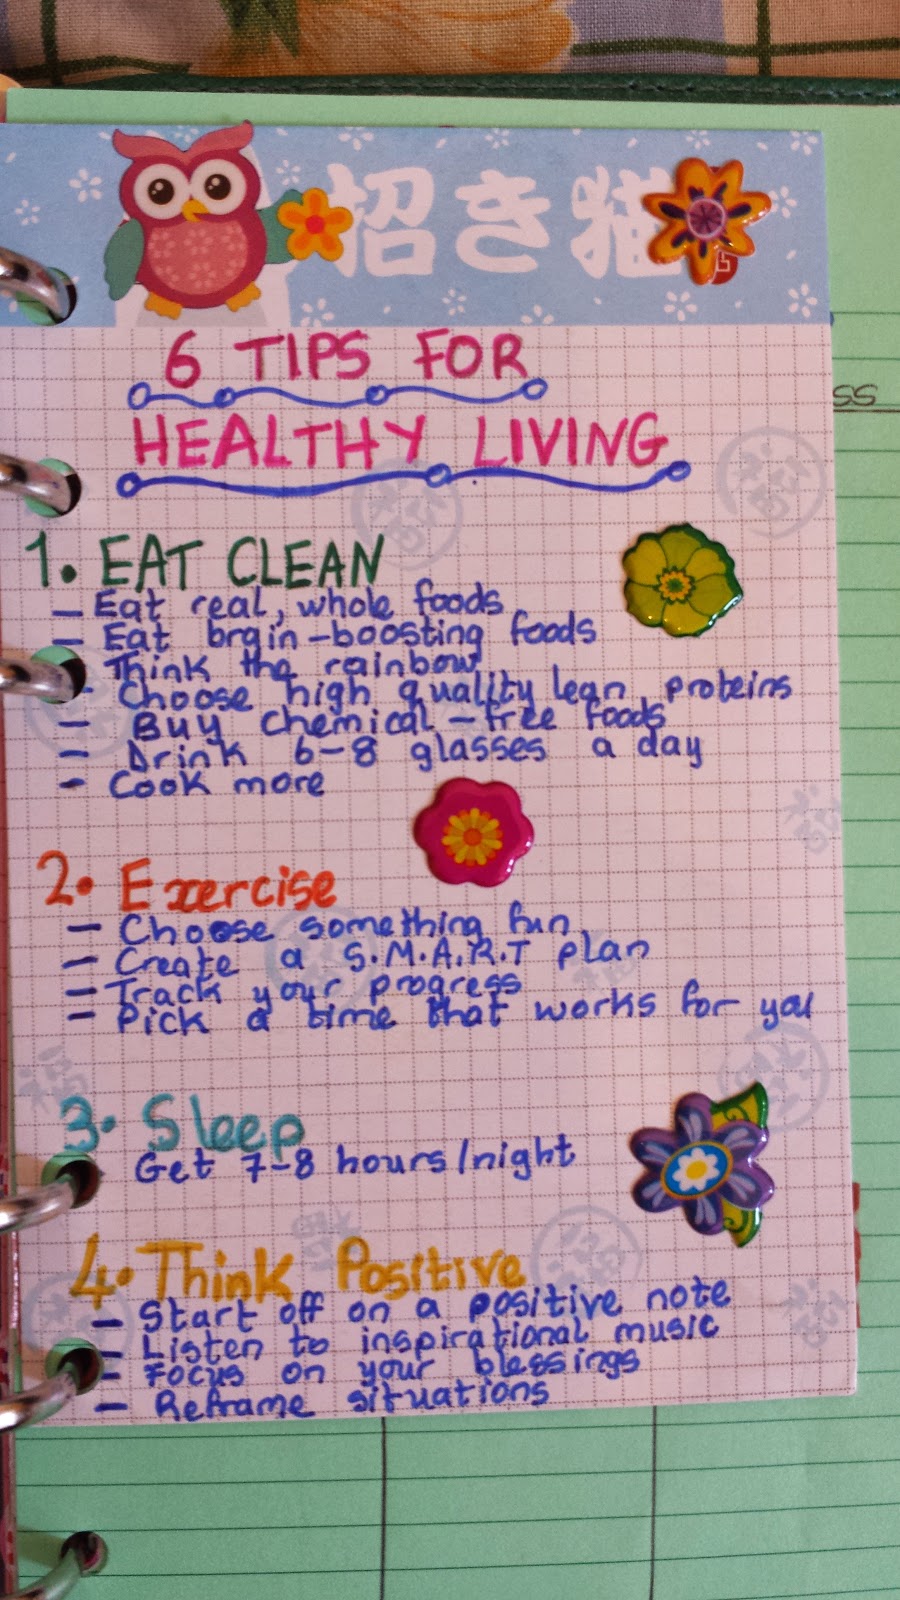 招き猫
6 TIPS FOR
HEALTHY LIVING
ss
1. EAT CLEAN
- Eat real, whole foods
- Eat brain-boosting foods
- Think the rainbow
- Choose high quality lean proteins
- Buy chemical-free foods
- Drink 6-8 glasses a day
- Cook more
2. Exercise
- Choose something fun
- Create a S.M.A.R.T plan
- Track your progress
- Pick a time that works for you
3. Sleep
Get 7-8 hours/night
4. Think Positive
- Start off on a positive note
- Listen to inspirational music
- Focus on your blessings
- Reframe situations